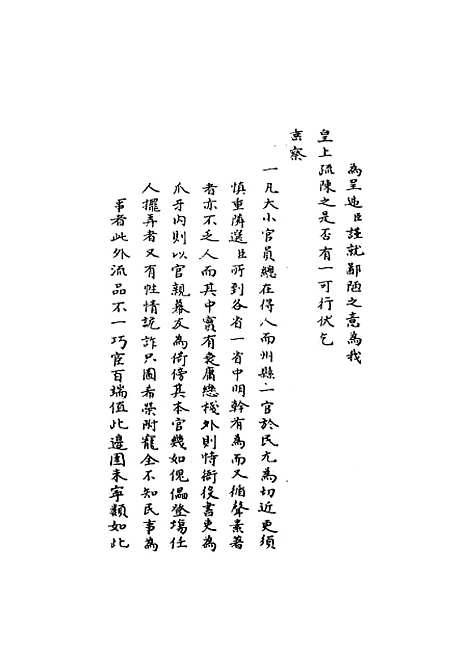 為呈迤臣謹就鄙陋之意為我
皇上疏陳之是否有一可行伏乞
京察
一凡大小官員總在得人而州縣二官於民尤為切近更須
慎重隣選臣所到各省一省中明幹有為而又循聲素著
者亦不乏人而其中實有衰庸戀棧外則恃衙役書吏為
爪牙內則以官親幕友為倚傍其本官幾如傀儡登塲任
人擺弄者又有性情詭詐只圖希榮附寵全不知民事為
事者此外流品不一巧宦百端值此邊圉未寧類如此